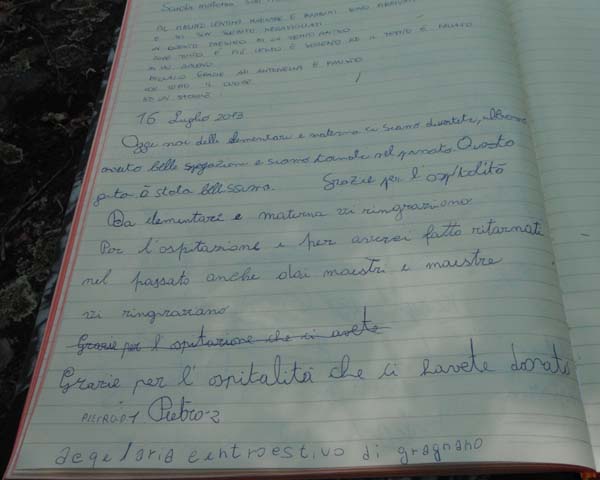 Scuola materna
AL MULINO LENTINI MAESTRE E BAMBINI SONO ARRIVATI
E SI SON SUBITO MERAVIGLIATI
IN QUESTO MULINO DI UN TEMPO ANTICO
DOVE TUTTO È PIÙ LENTO E SERENO ED IL TEMPO È
GRAZIE AD ANTONELLA E
CON TUTTO IL CUORE
16 Luglio 2013
Oggi noi delle elementari e materna ci siamo divertiti, abbiamo
avuto belle spegazioni e siamo tornati nel passato Questa
gita è stata bellissima. Grazie per l'ospitalità
Da elementare e materna vi ringraziano
Per l'ospitazione e per averci fatto ritarnati
nel passato anche dai maestri e maestre
vi ringraziano
Grazie per l ospitazione che ci avete
Grazie per l'ospitalità che ci havete donato
PIETRO-1 Pietro-2
centroestivo di gragnano